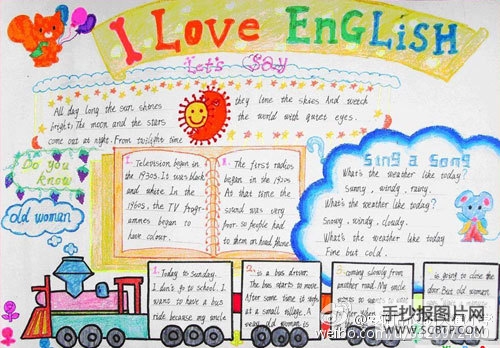 I LOVE ENGLISH
Let's Say
All day long the sun shines
bright, The moon and the stars
come out at night. From twilight time
they line the skies And weech
the world with quiet eyes.
Do you
know
old woman
1. Television began in
the 1930s. It was black
and white. In the
1960s, the TV frogr
ammes began to
have colour.
II. The first radios
began in the 1920s
At that time the
sound was very
poor. so people had
to them on head phone
Sing a Song
What's the weather like today?
Sunny, windy, rainy.
What's the weather like today?
Snowy, windy, cloudy.
What's the weather like today
Fine but cold.
1. Today to sunday.
I don't go to school. I
wans to have a bus
ride because my uncle
2. is a bus driver.
The bus starts to move.
After some time it stops
at a small village. A
very old woman is
3. coming slowly from
another road. My uncle
is going to close the
door. But old women
手抄报图片网
WWW.SCBTP.COM
weibo.com/